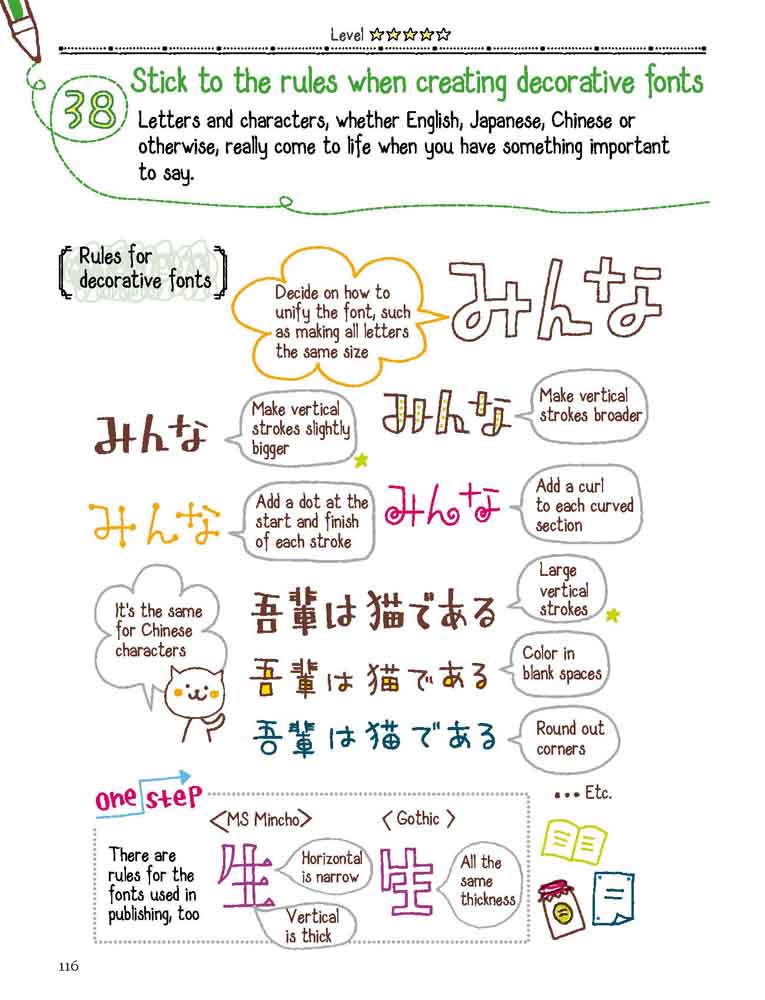 Level
38
Stick to the rules when creating decorative fonts
Letters and characters, whether English, Japanese, Chinese or
otherwise, really come to life when you have something important
to say.
Rules for
decorative fonts
Decide on how to
unify the font, such
as making all letters
the same size
みんな
みんな
Make vertical
strokes slightly
bigger
みんな
Make vertical
strokes broader
みんな
Add a dot at the
start and finish
of each stroke
みんな
Add a curl
to each curved
section
It's the same
for Chinese
characters
吾輩は猫である
Large
vertical
strokes
吾輩は猫である
Color in
blank spaces
吾輩は猫である
Round out
corners
... Etc.
one step
There are
rules for the
fonts used in
publishing, too
<MS Mincho>
生
Horizontal
is narrow
Vertical
is thick
<Gothic>
生
All the
same
thickness
116